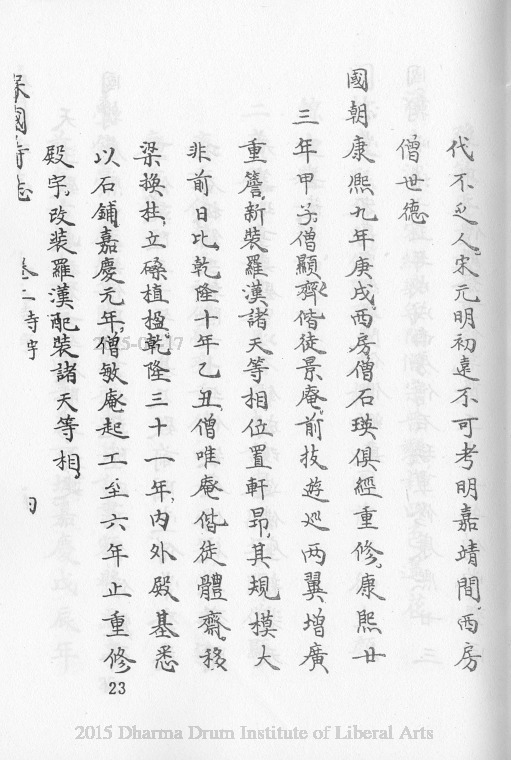 代不乏人宋元明初遠不可考明嘉靖間西房
僧世德
國朝康熙九年庚戌西房僧石瑛俱經重修康熙廿
三年甲子僧顯齊偕徒景庵前拔遊巡兩翼增廣
重簷新裝羅漢諸天等相位置軒昂其規模大
非前日比乾隆十年乙丑僧唯庵偕徒體齋移
梁換柱立磉植楹乾隆三十一年內外殿基悉
以石鋪嘉慶元年僧敏庵起工至六年止重修
殿宇改裝羅漢配裝諸天等相
保國寺志 卷二 寺宇
23
2015 Dharma Drum Institute of Liberal Arts